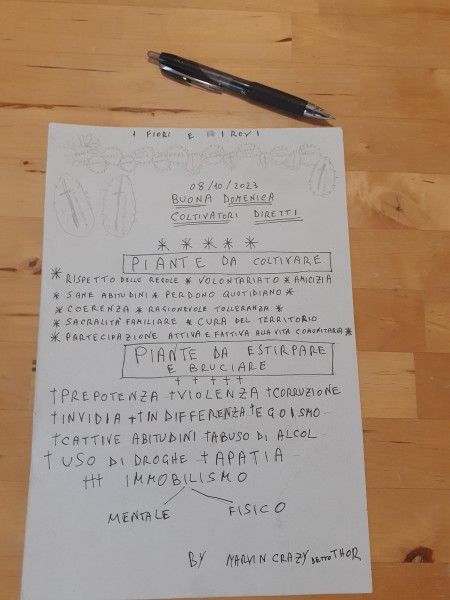 I FIORI E I ROVI
08/10/2023
BUONA DOMENICA
COLTIVATORI DIRETTI
* * * * *
PIANTE DA COLTIVARE
* RISPETTO DELLE REGOLE * VOLONTARIATO * AMICIZIA
* SANE ABITUDINI * PERDONO QUOTIDIANO *
* COERENZA * RAGIONEVOLE TOLLERANZA *
* SACRALITÀ FAMILIARE * CURA DEL TERRITORIO
* PARTECIPAZIONE ATTIVA E FATTIVA ALLA VITA COMUNITARIA *
PIANTE DA ESTIRPARE
E BRUCIARE
† † † † †
† PREPOTENZA † VIOLENZA † CORRUZIONE
† INVIDIA † † INDIFFERENZA † EGOISMO
† CATTIVE ABITUDINI † ABUSO DI ALCOL
† USO DI DROGHE † APATIA
††† IMMOBILISMO
MENTALE FISICO
BY MARVIN CRAZY DETTO THOR